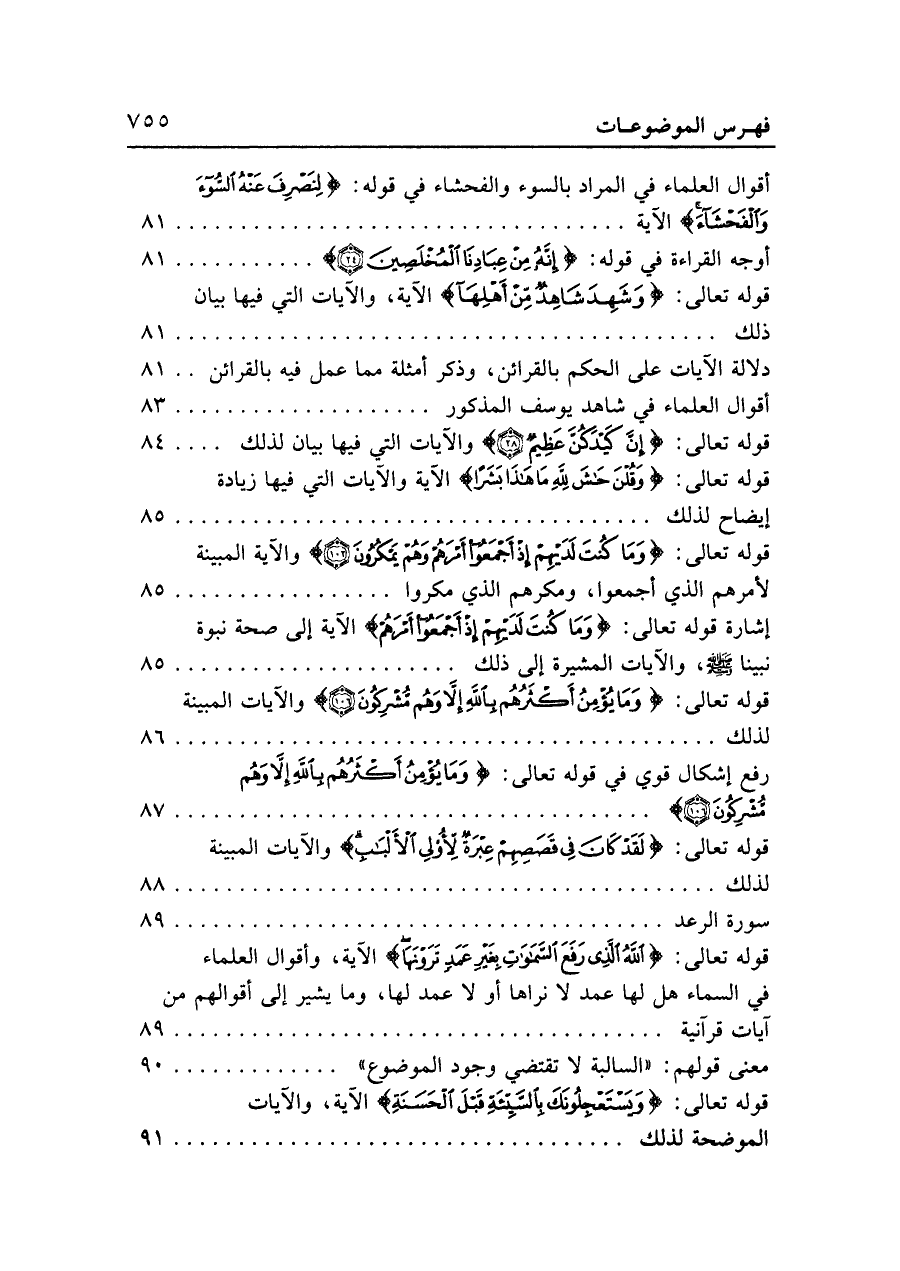 فهـرس الموضوعـات ٧٥٥
أقوال العلماء في المراد بالسوء والفحشاء في قوله: ﴿ لِنَصْرِفَ عَنْهُ ٱلسُّوٓءَ
وَٱلْفَحْشَآءَۚ﴾ الآية . . . . . . . . . . . . . . . . . . . . . . . . . . . . . . . . . . . ٨١
أوجه القراءة في قوله: ﴿ إِنَّهُۥ مِنْ عِبَادِنَا ٱلْمُخْلَصِينَ ۝٢٤﴾ . . . . . . . . . . . ٨١
قوله تعالى: ﴿ وَشَهِدَ شَاهِدٌ مِّنْ أَهْلِهَآ﴾ الآية، والآيات التي فيها بيان
ذلك . . . . . . . . . . . . . . . . . . . . . . . . . . . . . . . . . . . . . . . . . . ٨١
دلالة الآيات على الحكم بالقرائن، وذكر أمثلة مما عمل فيه بالقرائن . . ٨١
أقوال العلماء في شاهد يوسف المذكور . . . . . . . . . . . . . . . . . . . . ٨٣
قوله تعالى: ﴿ إِنَّ كَيْدَكُنَّ عَظِيمٌ ۝٢٨﴾ والآيات التي فيها بيان لذلك . . . . ٨٤
قوله تعالى: ﴿ وَقُلْنَ حَٰشَ لِلَّهِ مَا هَٰذَا بَشَرًا﴾ الآية والآيات التي فيها زيادة
إيضاح لذلك . . . . . . . . . . . . . . . . . . . . . . . . . . . . . . . . . . . . . ٨٥
قوله تعالى: ﴿ وَمَا كُنتَ لَدَيْهِمْ إِذْ أَجْمَعُوٓا۟ أَمْرَهُمْ وَهُمْ يَمْكُرُونَ ۝١٠٢﴾ والآية المبينة
لأمرهم الذي أجمعوا، ومكرهم الذي مكروا . . . . . . . . . . . . . . . . . ٨٥
إشارة قوله تعالى: ﴿ وَمَا كُنتَ لَدَيْهِمْ إِذْ أَجْمَعُوٓا۟ أَمْرَهُمْ﴾ الآية إلى صحة نبوة
نبينا ﷺ، والآيات المشيرة إلى ذلك . . . . . . . . . . . . . . . . . . . . . . ٨٥
قوله تعالى: ﴿ وَمَا يُؤْمِنُ أَكْثَرُهُم بِٱللَّهِ إِلَّا وَهُم مُّشْرِكُونَ ۝١٠٦﴾ والآيات المبينة
لذلك . . . . . . . . . . . . . . . . . . . . . . . . . . . . . . . . . . . . . . . . . . ٨٦
رفع إشكال قوي في قوله تعالى: ﴿ وَمَا يُؤْمِنُ أَكْثَرُهُم بِٱللَّهِ إِلَّا وَهُم
مُّشْرِكُونَ ۝١٠٦﴾ . . . . . . . . . . . . . . . . . . . . . . . . . . . . . . . . . . . . . ٨٧
قوله تعالى: ﴿ لَقَدْ كَانَ فِى قَصَصِهِمْ عِبْرَةٌ لِّأُو۟لِى ٱلْأَلْبَٰبِۗ﴾ والآيات المبينة
لذلك . . . . . . . . . . . . . . . . . . . . . . . . . . . . . . . . . . . . . . . . . . ٨٨
سورة الرعد . . . . . . . . . . . . . . . . . . . . . . . . . . . . . . . . . . . . . . ٨٩
قوله تعالى: ﴿ ٱللَّهُ ٱلَّذِى رَفَعَ ٱلسَّمَٰوَٰتِ بِغَيْرِ عَمَدٍ تَرَوْنَهَاۖ﴾ الآية، وأقوال العلماء
في السماء هل لها عمد لا نراها أو لا عمد لها، وما يشير إلى أقوالهم من
آيات قرآنية . . . . . . . . . . . . . . . . . . . . . . . . . . . . . . . . . . . . . . ٨٩
معنى قولهم: «السالبة لا تقتضي وجود الموضوع» . . . . . . . . . . . . . ٩٠
قوله تعالى: ﴿ وَيَسْتَعْجِلُونَكَ بِٱلسَّيِّئَةِ قَبْلَ ٱلْحَسَنَةِ﴾ الآية، والآيات
الموضحة لذلك . . . . . . . . . . . . . . . . . . . . . . . . . . . . . . . . . . . ٩١